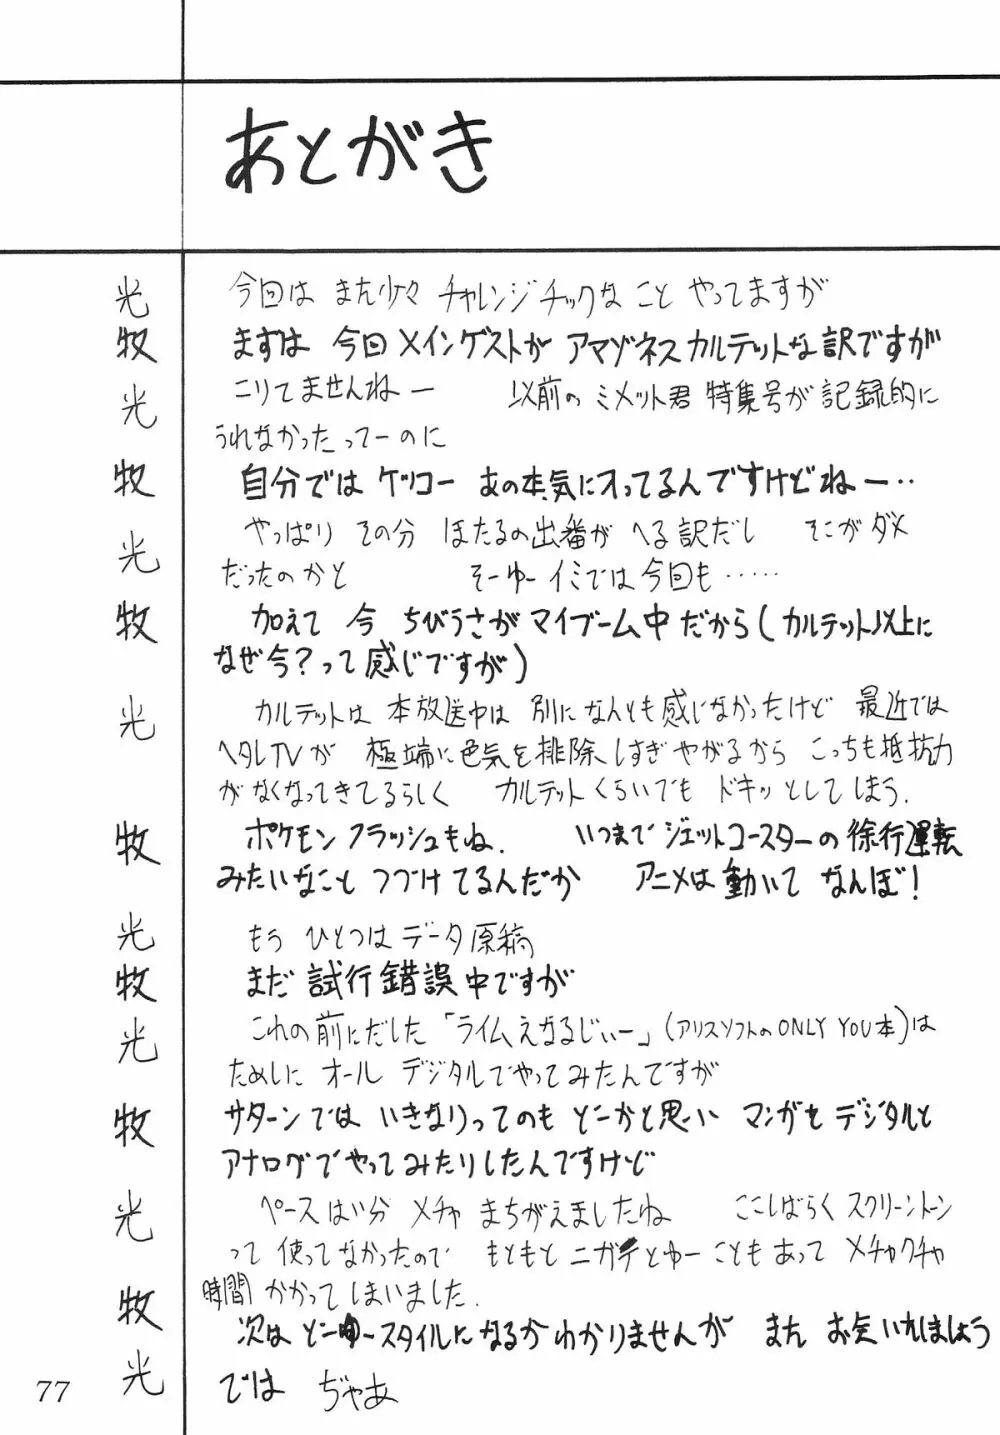 あとがき
光 今回は また少々 チャレンジチックな こと やってますが
牧 まずは 今回 メインゲストが アマゾネスカルテットな訳ですが
光 こりてませんねー 以前の ミメット君 特集号が 記録的に
うれなかったってーのに
牧 自分では ケッコー あの本気に入ってるんですけどねー‥
光 やっぱり その分 ほたるの出番が へる訳だし そこがダメ
だったのかと そーゆーイミでは今回も‥‥‥
牧 加えて 今 ちびうさが マイブーム中だから(カルテット以上に
なぜ今?って感じですが)
光 カルテットは 本放送中は 別になんとも感じなかったけど 最近では
ヘタレTVが 極端に色気を排除しすぎやがるから こっちも抵抗力
がなくなってきてるらしく カルテットくらいでも ドキッとしてしまう.
牧 ポケモンフラッシュもね. いつまでジェットコースターの徐行運転
みたいなこと つづけてるんだか アニメは動いて なんぼ!
光 もう ひとつは データ原稿
牧 まだ 試行錯誤中ですが
光 これの前にだした「ライムえなるじぃー」(アリスソフトのONLY YOU本)は
ためしに オール デジタルでやってみたんですが
牧 サターンでは いきなりってのも どーかと思い マンガを デジタルと
アナログでやってみたりしたんですけど
光 ペースは 分 メチャ まちがえましたね ここしばらく スクリーントーン
って 使ってなかったので もともと ニガテとゆーこともあって メチャクチャ
時間 かかって しまいました.
牧 次は どーゆースタイルに なるか わかりませんが また お会いしましょう
光 では ぢゃあ
77